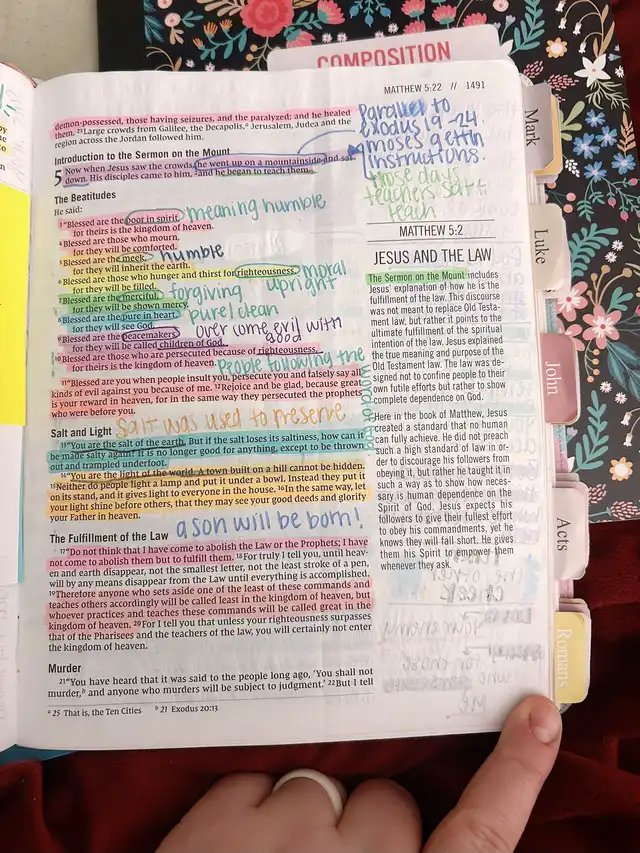 COMPOSITION
MATTHEW 5:22 // 1491
demon-possessed, those having seizures, and the paralyzed; and he healed
them. 25Large crowds from Galilee, the Decapolis,a Jerusalem, Judea and the
region across the Jordan followed him.
Introduction to the Sermon on the Mount
5 Now when Jesus saw the crowds, he went up on a mountainside and sat
down. His disciples came to him, 2and he began to teach them.
The Beatitudes
He said:
3"Blessed are the poor in spirit, meaning humble
for theirs is the kingdom of heaven.
4Blessed are those who mourn,
for they will be comforted.
5Blessed are the meek, humble
for they will inherit the earth.
6Blessed are those who hunger and thirst for righteousness, moral
upright
for they will be filled.
7Blessed are the merciful, forgiving
for they will be shown mercy.
8Blessed are the pure in heart, pure/clean
for they will see God.
9Blessed are the peacemakers, over come evil with
good
for they will be called children of God.
10Blessed are those who are persecuted because of righteousness,
for theirs is the kingdom of heaven. People following the
11"Blessed are you when people insult you, persecute you and falsely say all
kinds of evil against you because of me. 12Rejoice and be glad, because great
is your reward in heaven, for in the same way they persecuted the prophets
who were before you.
Salt was used to preserve
Salt and Light
13"You are the salt of the earth. But if the salt loses its saltiness, how can it
be made salty again? It is no longer good for anything, except to be thrown
out and trampled underfoot.
14"You are the light of the world. A town built on a hill cannot be hidden.
15Neither do people light a lamp and put it under a bowl. Instead they put it
on its stand, and it gives light to everyone in the house. 16In the same way, let
your light shine before others, that they may see your good deeds and glorify
your Father in heaven.
a son will be born!
The Fulfillment of the Law
17"Do not think that I have come to abolish the Law or the Prophets; I have
not come to abolish them but to fulfill them. 18For truly I tell you, until heav-
en and earth disappear, not the smallest letter, not the least stroke of a pen,
will by any means disappear from the Law until everything is accomplished.
19Therefore anyone who sets aside one of the least of these commands and
teaches others accordingly will be called least in the kingdom of heaven, but
whoever practices and teaches these commands will be called great in the
kingdom of heaven. 20For I tell you that unless your righteousness surpasses
that of the Pharisees and the teachers of the law, you will certainly not enter
the kingdom of heaven.
Murder
21"You have heard that it was said to the people long ago, 'You shall not
murder,b and anyone who murders will be subject to judgment.' 22But I tell
a 25 That is, the Ten Cities b 21 Exodus 20:13
Parallel to
Exodus 19-24
moses gettin
instructions.
those days
teachers sat t
teach
MATTHEW 5:2
JESUS AND THE LAW
The Sermon on the Mount includes
Jesus' explanation of how he is the
fulfillment of the law. This discourse
was not meant to replace Old Testa-
ment law, but rather it points to the
ultimate fulfillment of the spiritual
intention of the law. Jesus explained
the true meaning and purpose of the
Old Testament law. The law was de-
signed not to confine people to their
own futile efforts but rather to show
complete dependence on God.
Here in the book of Matthew, Jesus
created a standard that no human
can fully achieve. He did not preach
such a high standard of law in or-
der to discourage his followers from
obeying it, but rather he taught it in
such a way as to show how neces-
sary is human dependence on the
Spirit of God. Jesus expects his
followers to give their fullest effort
to obey his commandments, yet he
knows they will fall short. He gives
them his Spirit to empower them
whenever they ask.
Mark
Luke
John
Acts
Romans